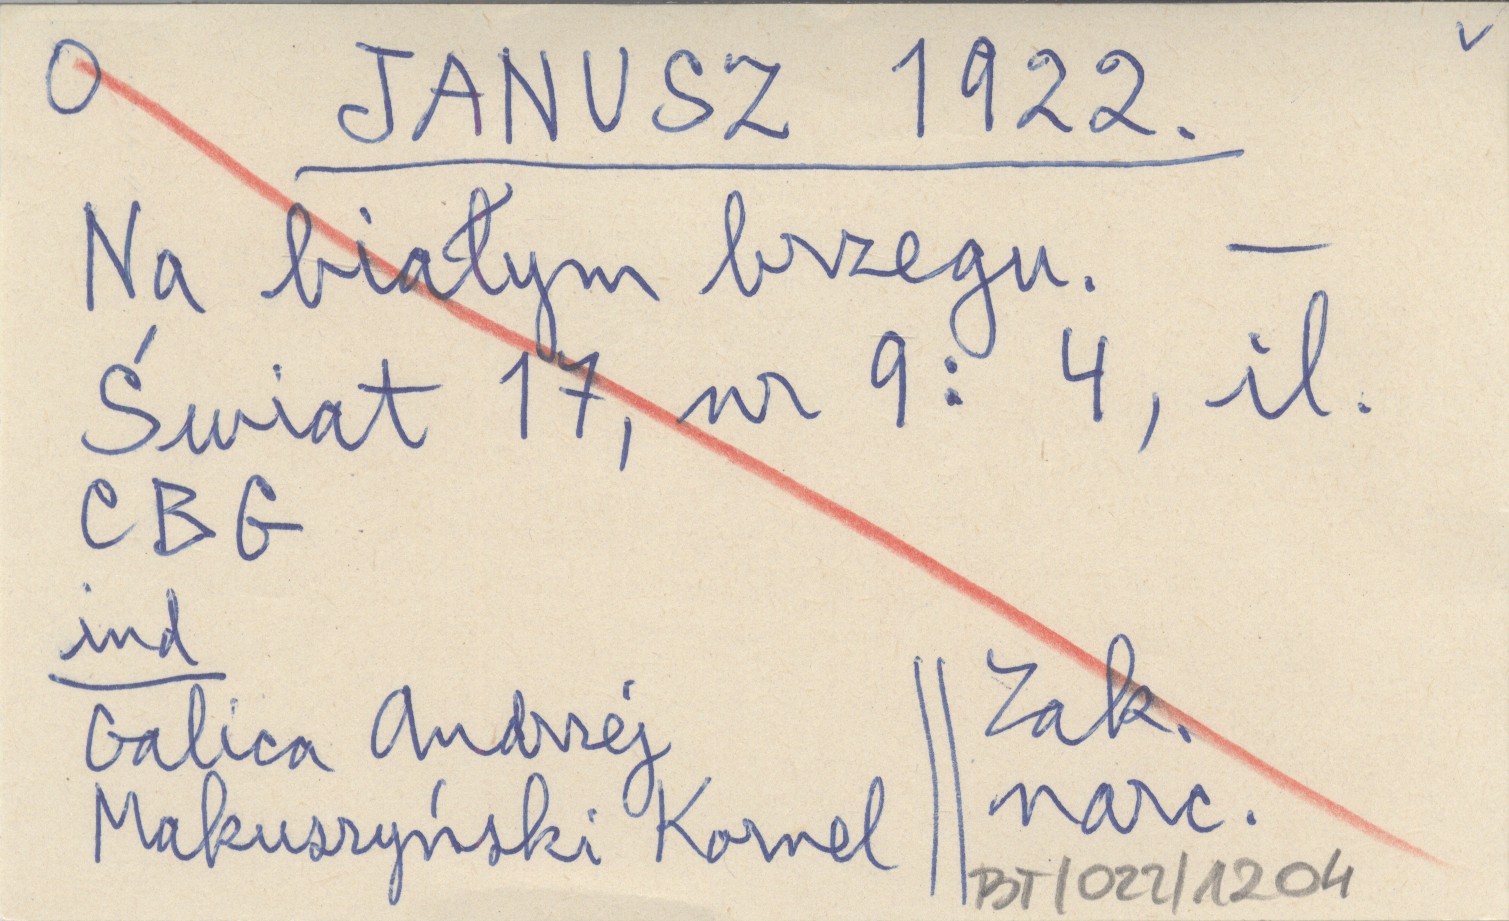 O JANUSZ 1922. v
Na białym brzegu. —
Świat 17, nr 9: 4, il.
CBG
ind
Galica Andrzej
Makuszyński Kornel
Zak.
narc.
BT/022/1204